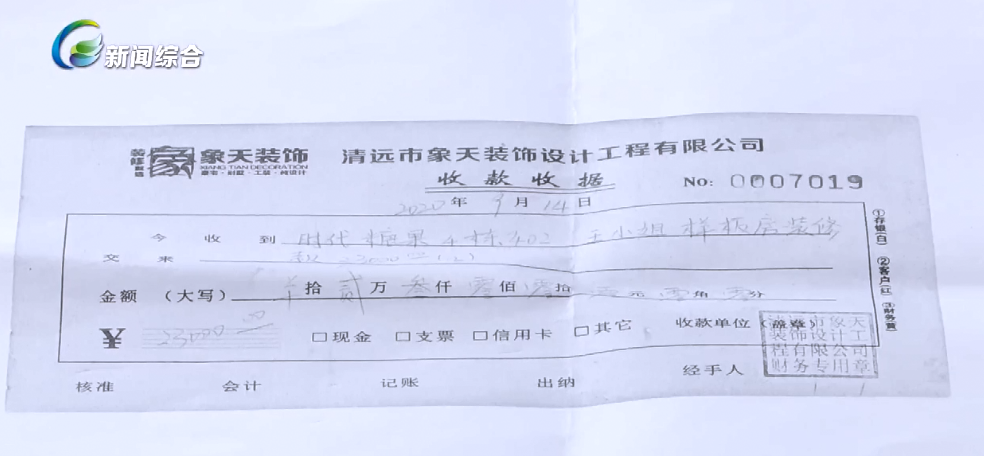 新闻综合
装修 象天装饰 清远市象天装饰设计工程有限公司
XIANG TIAN DECORATION
收款收据 No: 0007019
2020年9月14日
今收到 时代糖果4栋402 王小姐样板房装修
交来 款23000
金额 (大写) 拾贰万叁仟零佰零拾零元零角零分
¥ 23000.00 □现金 □支票 □信用卡 □其它 收款单位(盖章)
清远市象天
装饰设计工
程有限公司
财务专用章
经手人
核准 会计 记账 出纳
①存银(白) ②客户(红) ③财务(黄)